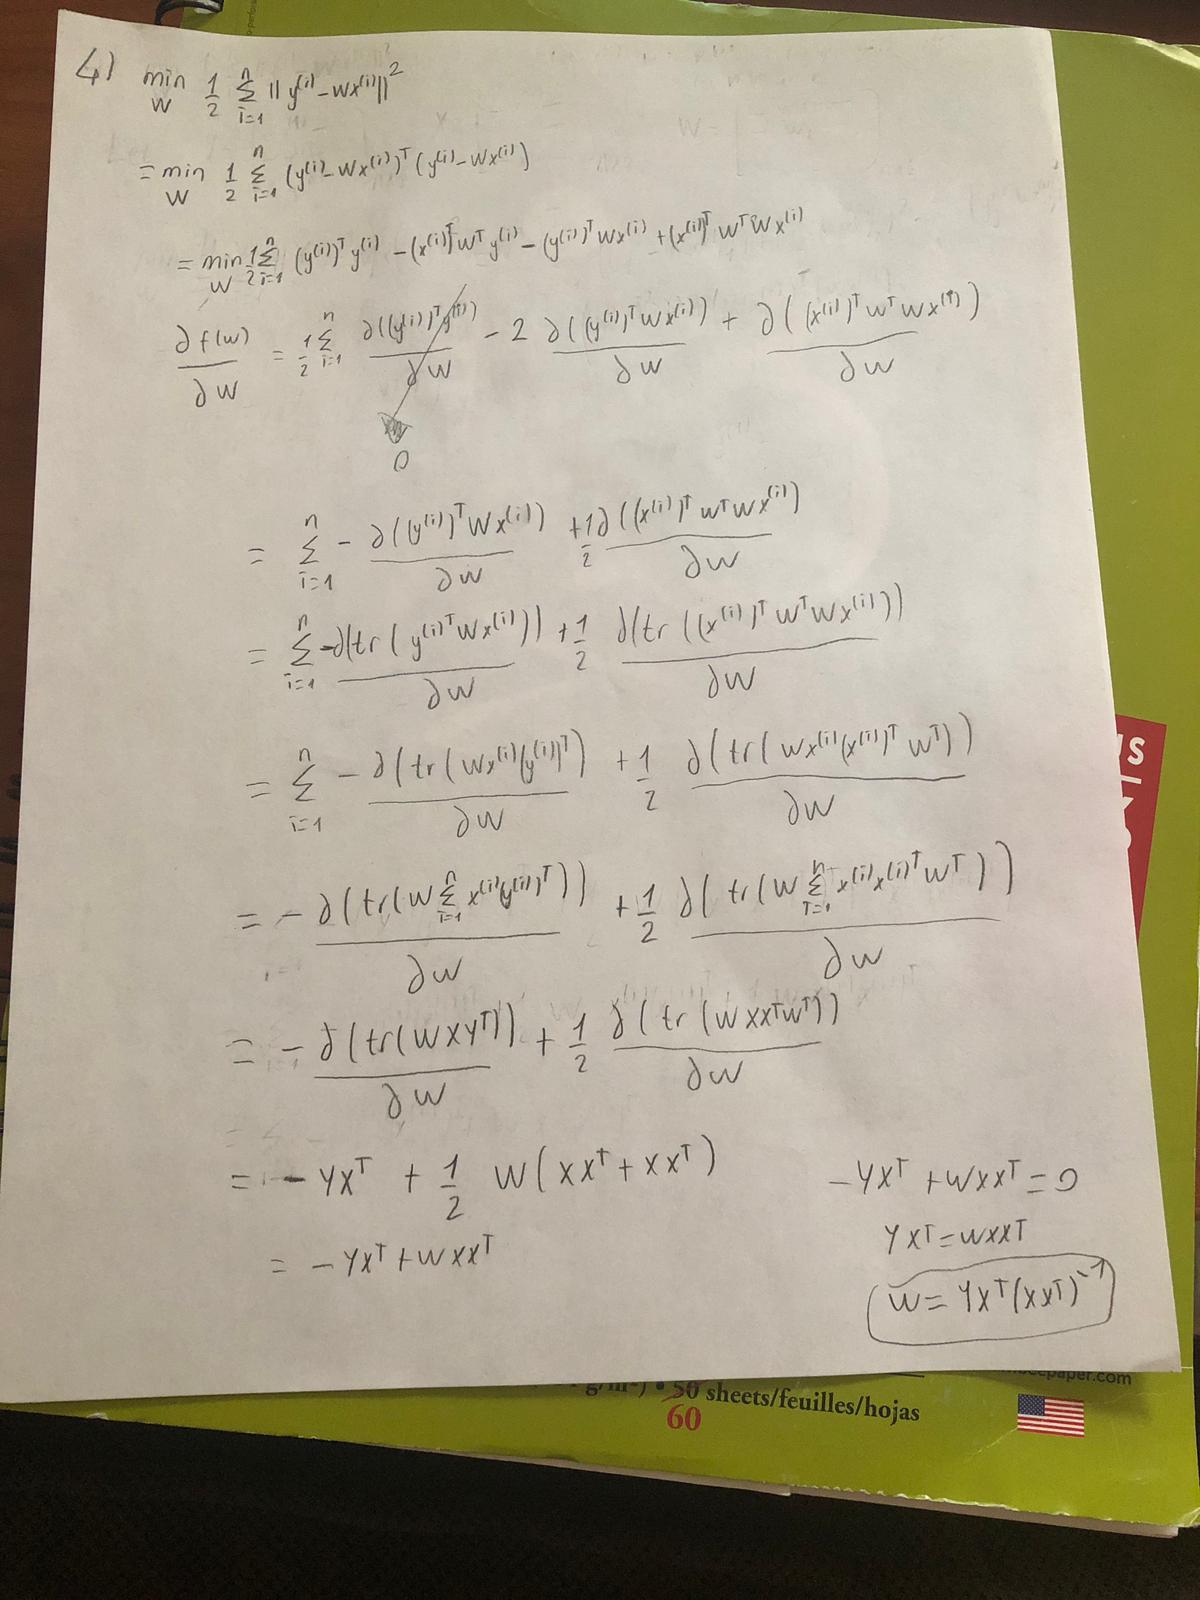 4) min_W 1/2 Σ_{i=1}^n || y^(i) - Wx^(i) ||^2
= min_W 1/2 Σ_{i=1}^n (y^(i) - Wx^(i))^T (y^(i) - Wx^(i))
= min_W 1/2 Σ_{i=1}^n (y^(i))^T y^(i) - (x^(i))^T W^T y^(i) - (y^(i))^T Wx^(i) + (x^(i))^T W^T W x^(i)
∂f(W)/∂W = 1/2 Σ_{i=1}^n ∂((y^(i))^T y^(i))/∂W - 2 ∂((y^(i))^T Wx^(i))/∂W + ∂((x^(i))^T W^T W x^(i))/∂W
0
= Σ_{i=1}^n - ∂((y^(i))^T Wx^(i))/∂W + 1/2 ∂((x^(i))^T W^T W x^(i))/∂W
= Σ_{i=1}^n - ∂(tr(y^(i)^T Wx^(i)))/∂W + 1/2 ∂(tr((x^(i))^T W^T W x^(i)))/∂W
= Σ_{i=1}^n - ∂(tr(Wx^(i)(y^(i))^T)/∂W + 1/2 ∂(tr(Wx^(i)(x^(i))^T W^T))/∂W
= - ∂(tr(W Σ_{i=1}^n x^(i) y^(i)^T))/∂W + 1/2 ∂(tr(W Σ_{i=1}^n x^(i) x^(i)^T W^T))/∂W
= - ∂(tr(WXY^T))/∂W + 1/2 ∂(tr(WXX^T W^T))/∂W
= - YX^T + 1/2 W(XX^T + XX^T)
= - YX^T + WXX^T
- YX^T + WXX^T = 0
YX^T = WXX^T
W = YX^T(XX^T)^-1
50 sheets/feuilles/hojas
60